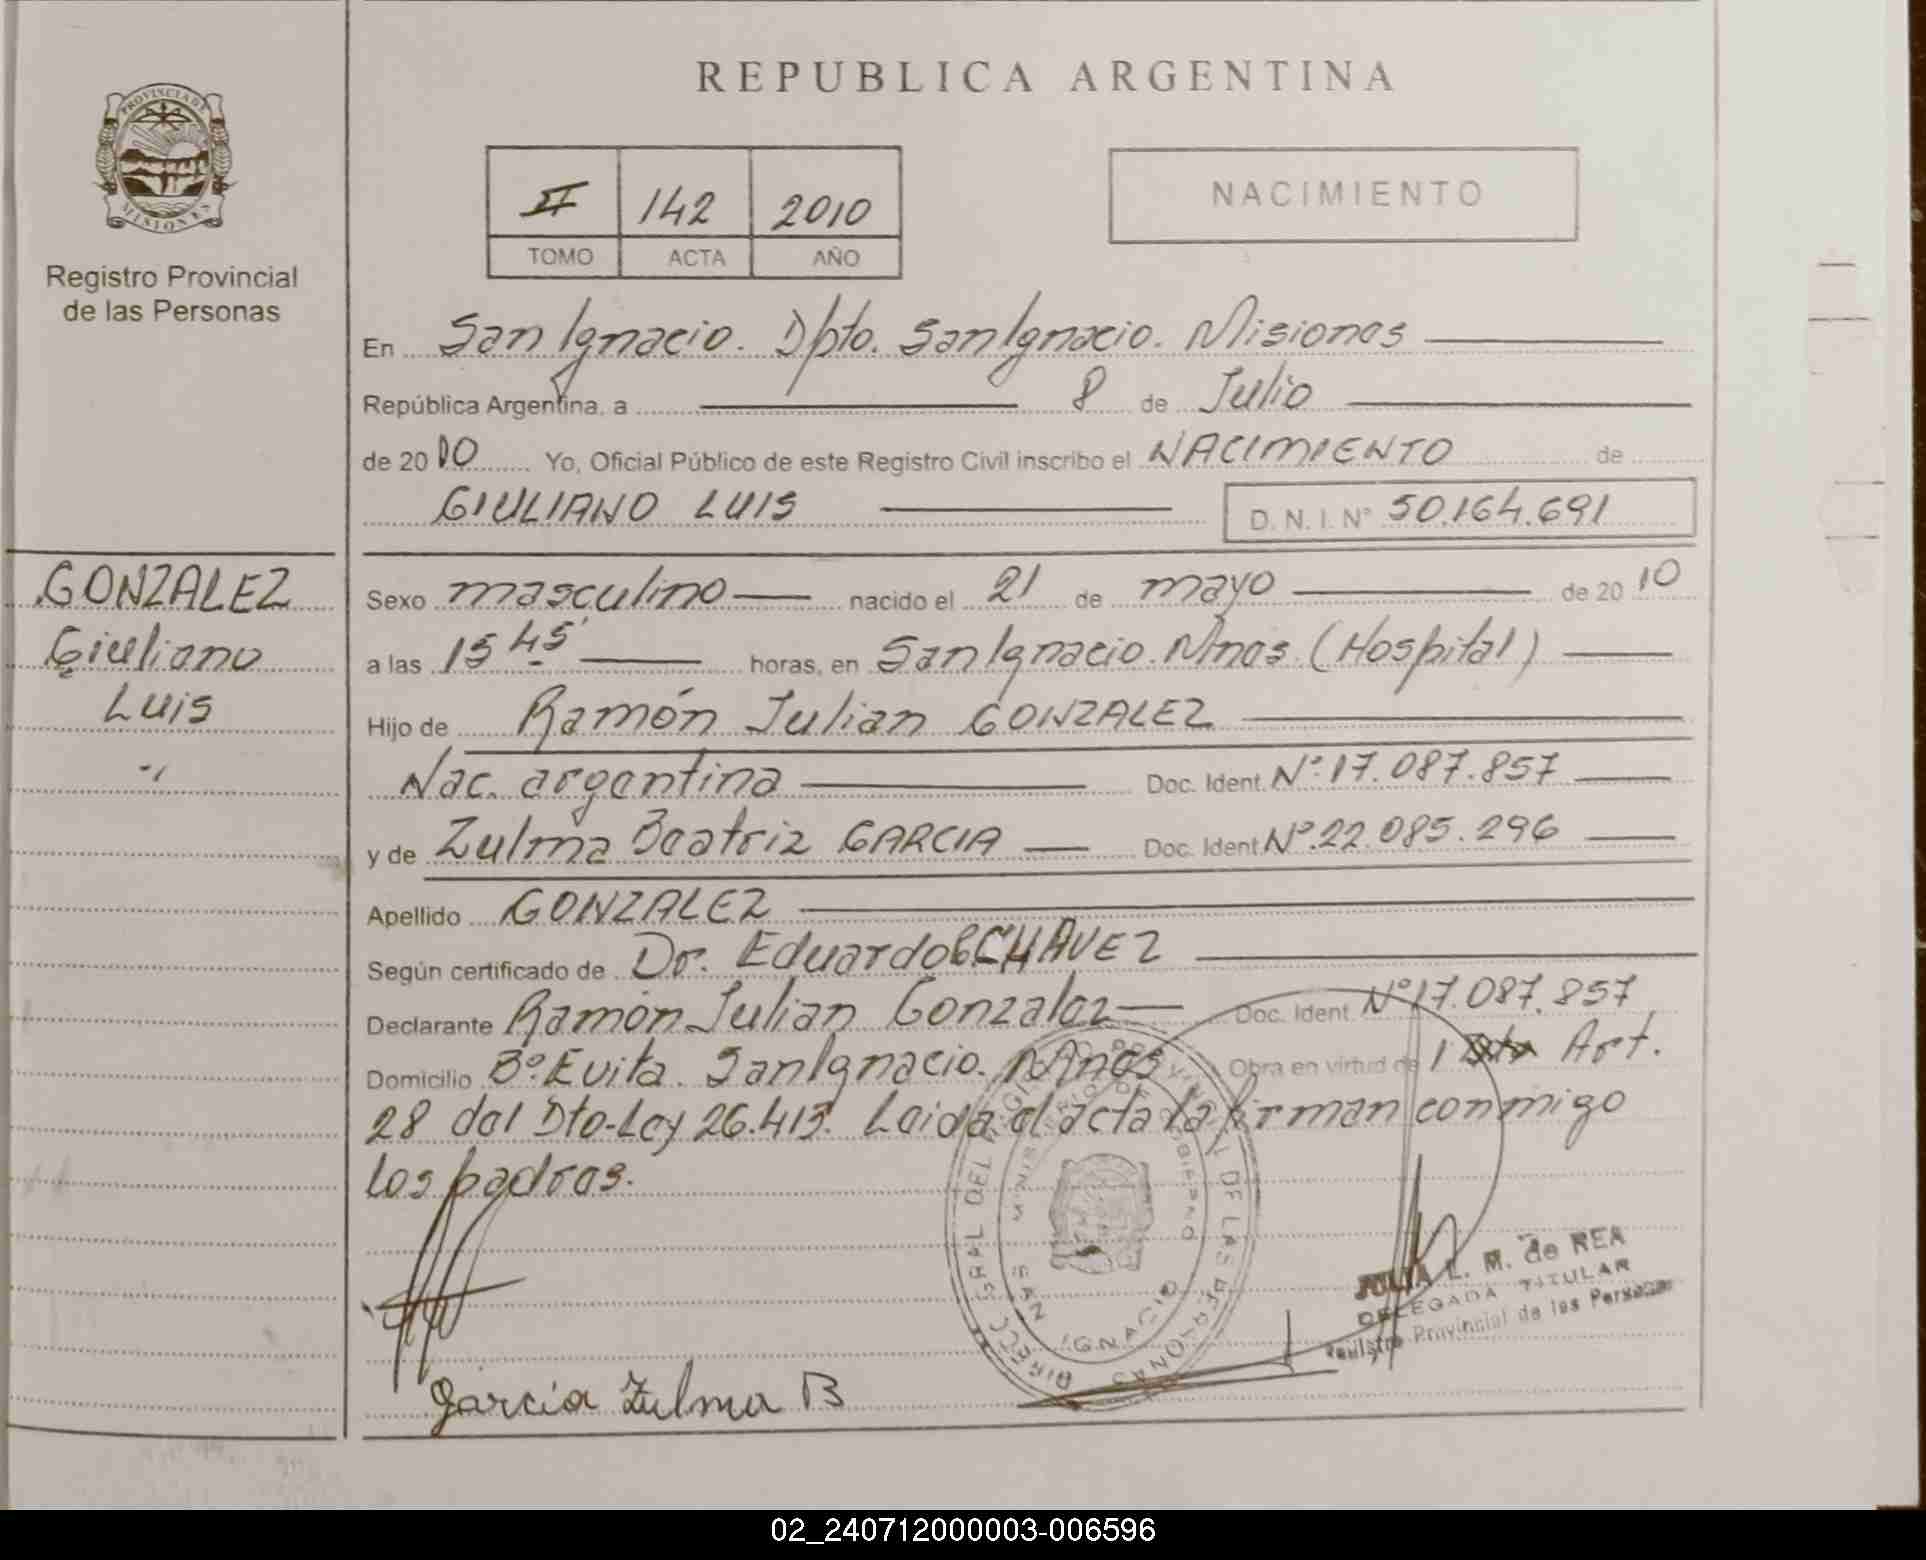 REPUBLICA ARGENTINA
PROVINCIA DE MISIONES
Registro Provincial
de las Personas
II 142 2010
TOMO ACTA AÑO
NACIMIENTO
En San Ignacio. Dpto. San Ignacio. Misiones
República Argentina, a 8 de Julio
de 2010 Yo, Oficial Público de este Registro Civil inscribo el NACIMIENTO de
GIULIANO LUIS D. N. I. N° 50.164.691
GONZALEZ
Giuliano
Luis
Sexo masculino nacido el 21 de mayo de 2010
a las 15 45' horas, en San Ignacio. Mnes. (Hospital)
Hijo de Ramón Julian GONZALEZ
Nac. argentina Doc. Ident. N°:17.087.857
y de Zulma Beatriz GARCIA Doc. Ident. N°.22.085.296
Apellido GONZALEZ
Según certificado de Dr. Eduardo CHAVEZ
Declarante Ramón Julian Gonzalez Doc. Ident. N°17.087.857
Domicilio B°. Evita. San Ignacio. Mnes Obra en virtud de 1 Art.
28 del Dto-Ley 26.413. Leida el acta la firman conmigo
los padres.
Garcia Zulma B
DIRECC. GRAL. DEL REGISTRO PROVINCIAL DE LAS PERSONAS
MINISTERIO DE GOBIERNO
SAN IGNACIO
JULIA L. M. de REA
DELEGADA TITULAR
Registro Provincial de las Personas
02_240712000003-006596